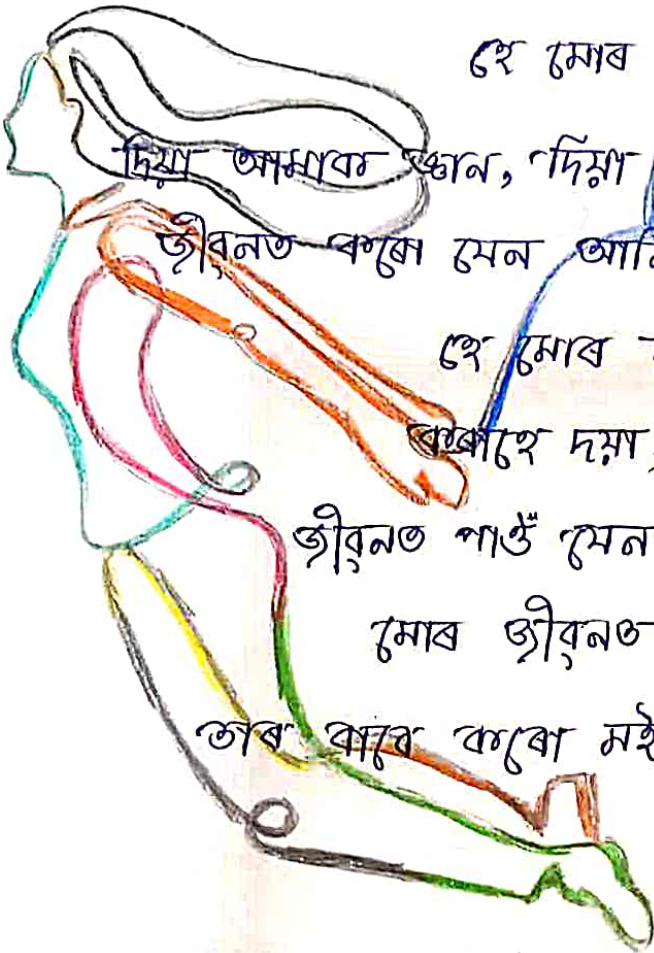 হে মোৰ
দিয়া আমাক জ্ঞান, দিয়া
জীৱনত কৰো যেন আমি
হে মোৰ
কৰাহে দয়া,
জীৱনত পাওঁ যেন
মোৰ জীৱনত
তাৰ বাবে কৰো মই